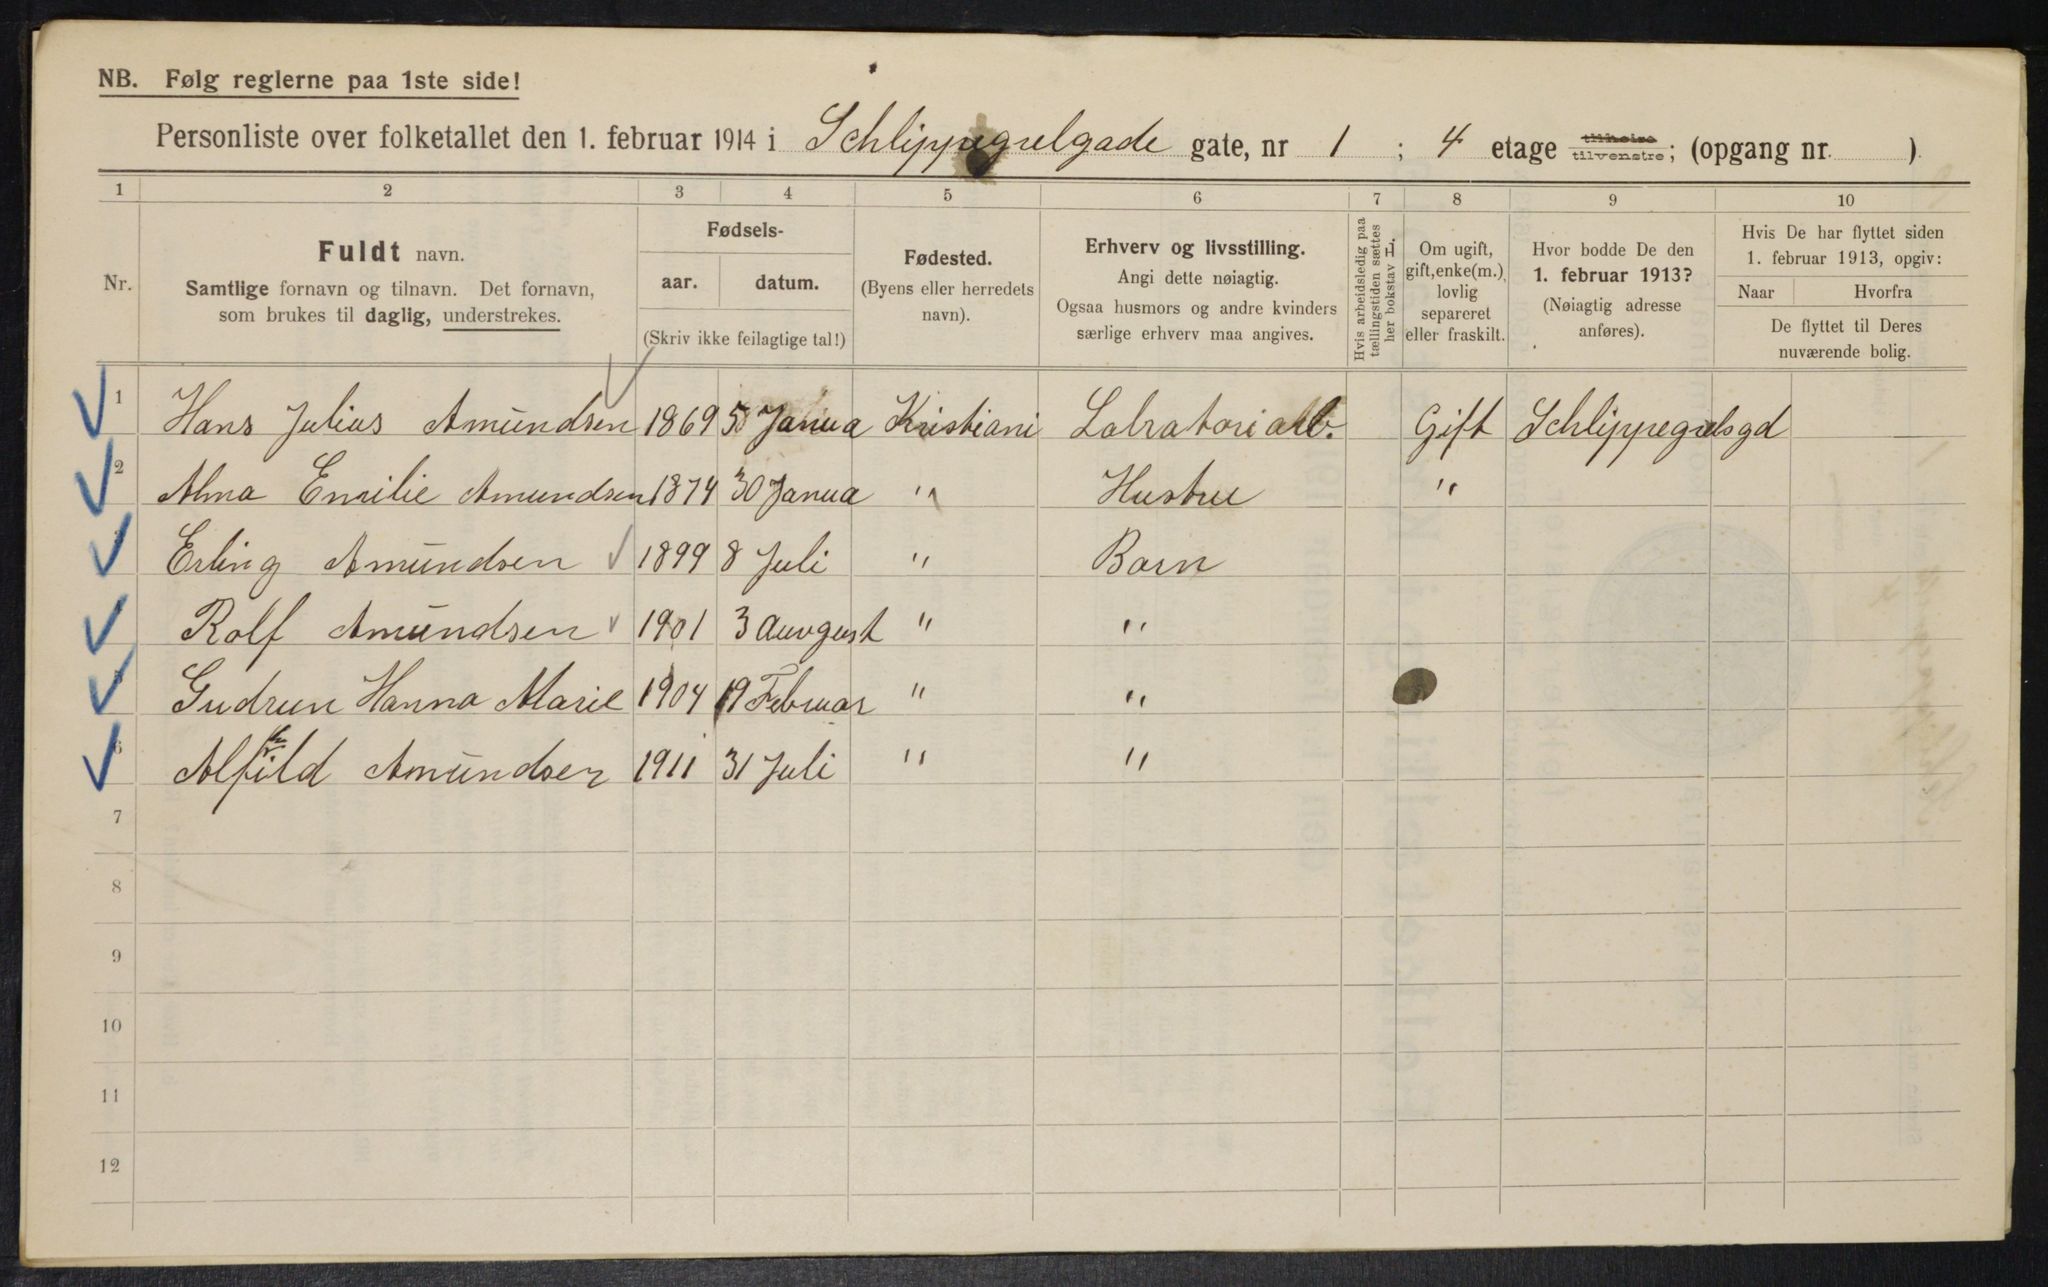 NB. Følg reglerne paa 1ste side!
Personliste over folketallet den 1. februar 1914 i Schlippegrelgade gate, nr 1 ; 4 etage tilhøire tilvenstre; (opgang nr. )
1 2 3 4 5 6 7 8 9 10
Nr.
Fuldt navn.
Samtlige fornavn og tilnavn. Det fornavn,
som brukes til daglig, understrekes.
Fødsels-
aar. datum.
(Skriv ikke feilagtige tal!)
Fødested.
(Byens eller herredets
navn).
Erhverv og livsstilling.
Angi dette nøiagtig.
Ogsaa husmors og andre kvinders
særlige erhverv maa angives.
Hvis arbeidsledig paa
tællingstiden sættes
her bokstav L.
Om ugift,
gift, enke(m.),
lovlig
separeret
eller fraskilt.
Hvor bodde De den
1. februar 1913?
(Nøiagtig adresse
anføres).
Hvis De har flyttet siden
1. februar 1913, opgiv:
Naar Hvorfra
De flyttet til Deres
nuværende bolig.
1 Hans Julius Amundsen 1869 5 Janua Kristiani Labratoriarb. Gift Schlippegrelsgd
2 Alma Emilie Amundsen 1874 30 Janua " Hustru "
3 Erling Amundsen 1899 8 Juli " Barn
Rolf Amundsen 1901 3 Auvgust " "
5 Gudrun Hanna Marie 1904 19 Februar " "
6 Alfild Amundsen 1911 31 Juli " "
7
8
9
10
11
12